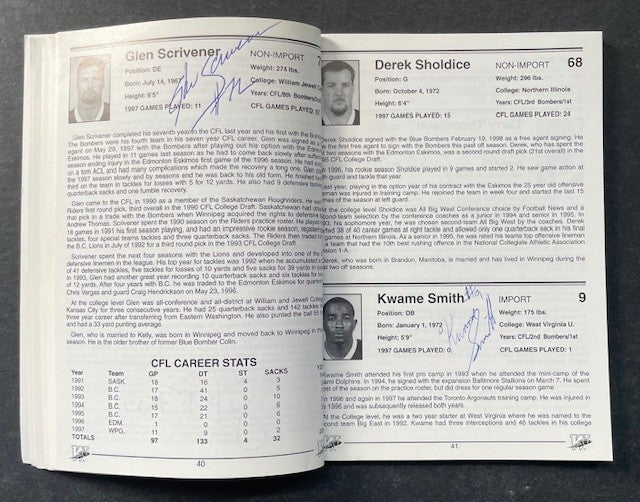 Glen Scrivener
NON-IMPORT
Position: DE
Weight: 274 lbs.
Born: July 14, 1967
College: William Jewell
Height: 6'5"
Years: CFL/8th Bombers/
1997 GAMES PLAYED: 11
CFL GAMES PLAYED:
Glen Scrivener completed his seventh year in the CFL last year and his first with the
The Bombers were his fourth team in his seven year CFL career. Glen was signed as a
agent on May 29, 1997 with the Bombers after playing out his option with the
Eskimos. He played in 11 games last season as he had to come back slowly after
season ending injury in the Edmonton Eskimos first game of the 1996 season. He had
on a torn ACL and had many complications which made the recovery a long one. Glen
the 1997 season slowly and by seasons end he was back to his old form. He finished
third on the team in tackles for losses with 5 for 12 yards. He also had 9 defensive
quarterback sacks and one fumble recovery.
Glen came to the CFL in 1990 as a member of the Saskatchewan Roughriders. He was
Riders first round pick, third overall in the 1990 CFL College Draft. Saskatchewan had
that pick in a trade with the Bombers when Winnipeg acquired the rights to defensive
Andrew Thomas. Scrivener spent the 1990 season on the Riders practice roster. He played
18 games in 1991 his first season playing, and had an impressive rookie season,
tackles, four special teams tackles and three quarterback sacks. The Riders then traded
the B.C. Lions in July of 1992 for a third round pick in the 1993 CFL College Draft.
Scrivener spent the next four seasons with the Lions and developed into one of the
defensive linemen in the league. His top year for tackles was 1992 when he accumulated
of 41 defensive tackles, five tackles for losses of 10 yards and five sacks for 39 yards in
in 1993, Glen had another great year recording 10 quarterback sacks and six tackles for
of 12 yards. After four years with B.C. he was traded to the Edmonton Eskimos for
Chris Vargas and guard Craig Hendrickson on May 23, 1996.
At the college level Glen was all-conference and all-district at William and Jewell College
Kansas City for three consecutive years. He had 25 quarterback sacks and 142 tackles
three year career after transferring from Eastern Washington. He also punted the ball 55
and had a 33 yard punting average.
Glen, who is married to Kelly, was born in Winnipeg and moved back to Winnipeg in
season. He is the older brother of former Blue Bomber Colin.
CFL CAREER STATS
Year Team GP DT ST SACKS
1991 SASK. 18 16 4 3
1992 B.C. 17 41 0 5
1993 B.C. 18 24 0 10
1994 B.C. 15 22 0 6
1995 B.C. 17 21 0 6
1996 EDM. 1 0 0 0
1997 WPG. 11 9 0 2
TOTALS 97 133 4 32
40
Derek Sholdice
NON-IMPORT
68
Position: G
Weight: 296 lbs.
Born: October 4, 1972
College: Northern Illinois
Height: 6'4"
Years: CFL/3rd Bombers/1st
1997 GAMES PLAYED: 15
CFL GAMES PLAYED: 24
Derek Sholdice signed with the Blue Bombers February 19, 1998 as a free agent signing. He
is the first free agent to sign with the Bombers this past off season. Derek, who has spent the
two seasons with the Edmonton Eskimos, was a second round draft pick (21st overall) in the
CFL College Draft.
1995, his rookie season Sholdice played in 9 games and started 2. He saw game action at
guard and tackle that year.
Last year, playing in the option year of his contract with the Eskimos the 25 year old offensive
was injured in training camp. He rejoined the team in week four and started the last 15
of the season at left guard.
the college level Sholdice was All Big West Conference choice by Football News and a
team selection by the conference coaches as a junior in 1994 and senior in 1995. In
his sophomore year, he was chosen second-team All Big West by the coaches. Derek
38 of 40 career games at right tackle and allowed only one quarterback sack in his final
games at Northern Illinois. As a senior in 1995, he was rated his teams top offensive lineman
a team that had the 10th best rushing offence in the National Collegiate Athletic Association
1-A.
Derek, who was born in Brandon, Manitoba, is married and has lived in Winnipeg during the
two off seasons.
Kwame Smith
IMPORT
9
Position: DB
Weight: 175 lbs.
Born: January 1, 1972
College: West Virginia U.
Height: 5'9"
Years: CFL/2nd Bombers/1st
1997 GAMES PLAYED: 0
CFL GAMES PLAYED: 1
Kwame Smith attended his first pro camp in 1993 when he attended the mini-camp of the
Dolphins. In 1994, he signed with the expansion Baltimore Stallions on March 7. He spent
of the season on the practice roster, but did dress for one regular season game.
1996 and again in 1997 he attended the Toronto Argonauts training camp. He was injured in
1996 and was subsequently released both years.
At the College level, he was a two year starter at West Virginia where he was named to the
second team Big East in 1992. Kwame had three interceptions and 46 tackles in his college
41